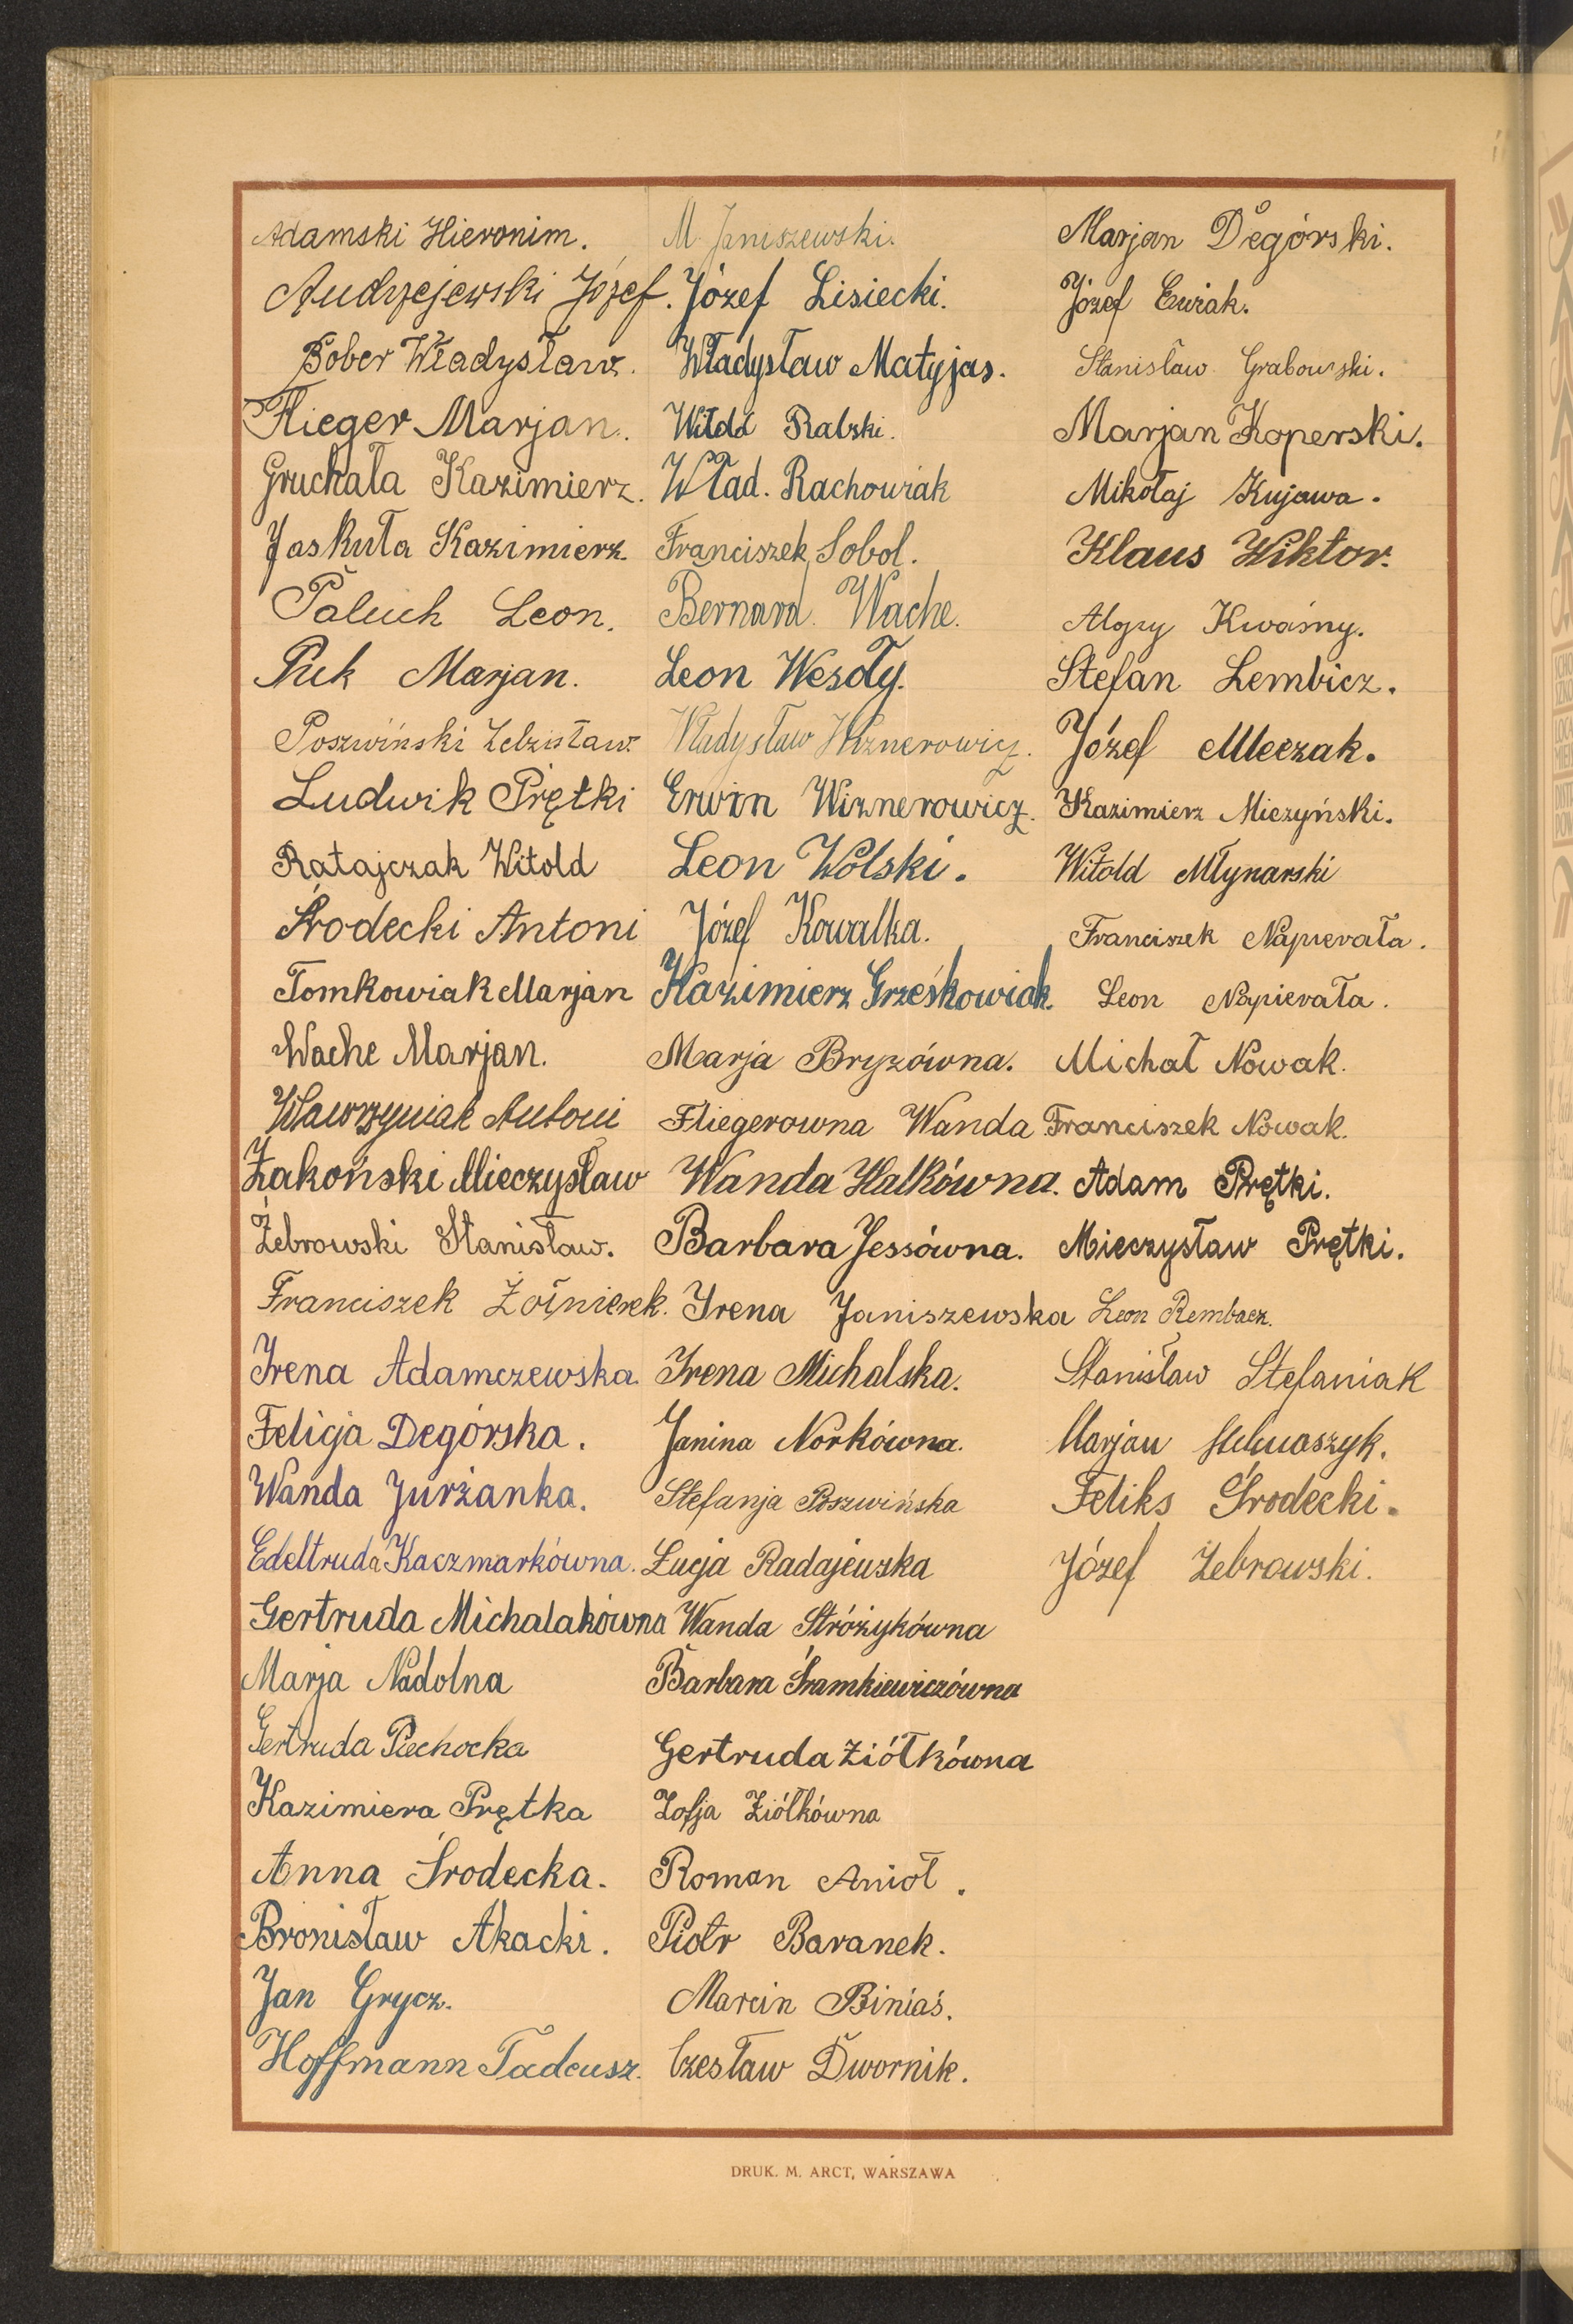 Adamski Hieronim.
Andrzejewski Józef.
Bober Władysław.
Flieger Marjan.
Gruchała Kazimierz.
Jaskuła Kazimierz.
Paluch Leon.
Puk Marjan.
Poszwiński Zdzisław
Ludwik Prętki
Ratajczak Witold
Środecki Antoni
Tomkowiak Marjan
Wache Marjan.
Wawrzyniak Antoni
Żakoński Mieczysław
Żebrowski Stanisław.
Franciszek Żołnierek.
Irena Adamczewska.
Felicja Degórska.
Wanda Jurżanka.
Edeltruda Kaczmarkówna.
Gertruda Michalakówna
Marja Nadolna
Gertruda Piechocka
Kazimiera Prętka
Anna Środecka.
Bronisław Akacki.
Jan Grycz.
Hoffmann Tadeusz.
M. Janiszewski.
Józef Lisiecki.
Władysław Matyjas.
Witold Ralski.
Wład. Rachowiak
Franciszek Sobol.
Bernard Wache.
Leon Wesoły.
Władysław Wiznerowicz.
Erwin Wiznerowicz.
Leon Wolski.
Józef Kowalka.
Kazimierz Grześkowiak.
Marja Bryzówna.
Fliegerowna Wanda
Wanda Halkówna.
Barbara Jessówna.
Irena Janiszewska
Irena Michalska.
Janina Norkówna.
Stefanja Poszwińska
Łucja Radajewska
Wanda Stróżykówna
Barbara Śramkiewiczówna
Gertruda Ziółkówna
Zofja Ziółkówna
Roman Anioł.
Piotr Baranek.
Marcin Biniaś.
Czesław Dwornik.
Marjan Degórski.
Józef Ćwiak.
Stanisław Grabowski.
Marjan Koperski.
Mikołaj Kujawa.
Klaus Wiktor.
Alojzy Kwaśny.
Stefan Lembicz.
Józef Mleczak.
Kazimierz Mieczyński.
Witold Młynarski
Franciszek Napierała.
Leon Napierała.
Michał Nowak.
Franciszek Nowak.
Adam Prętki.
Mieczysław Prętki.
Leon Rembacz.
Stanisław Stefaniak
Marjan
Feliks Środecki.
Józef Żebrowski.
DRUK. M. ARCT, WARSZAWA